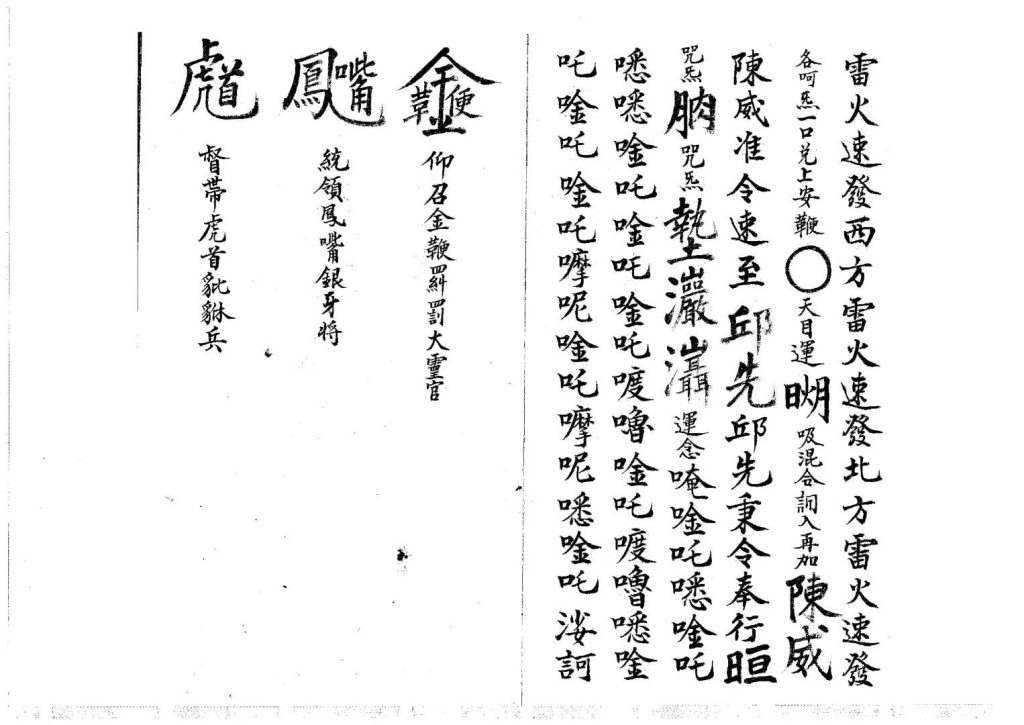 雷火速發西方雷火速發北方雷火速發
各呵炁一口兑上安鞭〇天目運眀吸混合詞入再加陳威
陳威准令速至邱先邱先秉令奉行晅
咒炁朒咒炁執土運念唵唫吒㗭唫吒
㗭㗭唫吒唫吒唫吒喥嚕唫吒喥嚕㗭唫
吒唫吒唫吒嚤呢唫吒嚤呢㗭唫吒娑訶
仰召金鞭糾罰大靈官
鳳嘴
統領鳳嘴銀牙將
督帶虎首豼貅兵